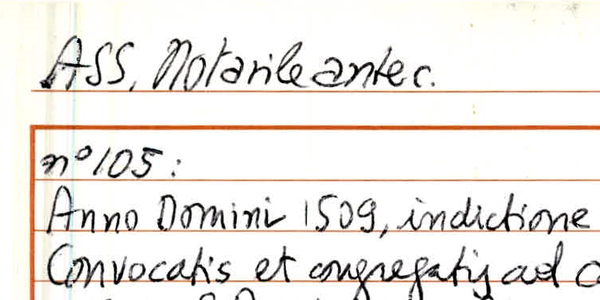 ASS, Notarile antec.
n° 105:
Anno Domini 1509, indictione
Convocatis et congregatis ad